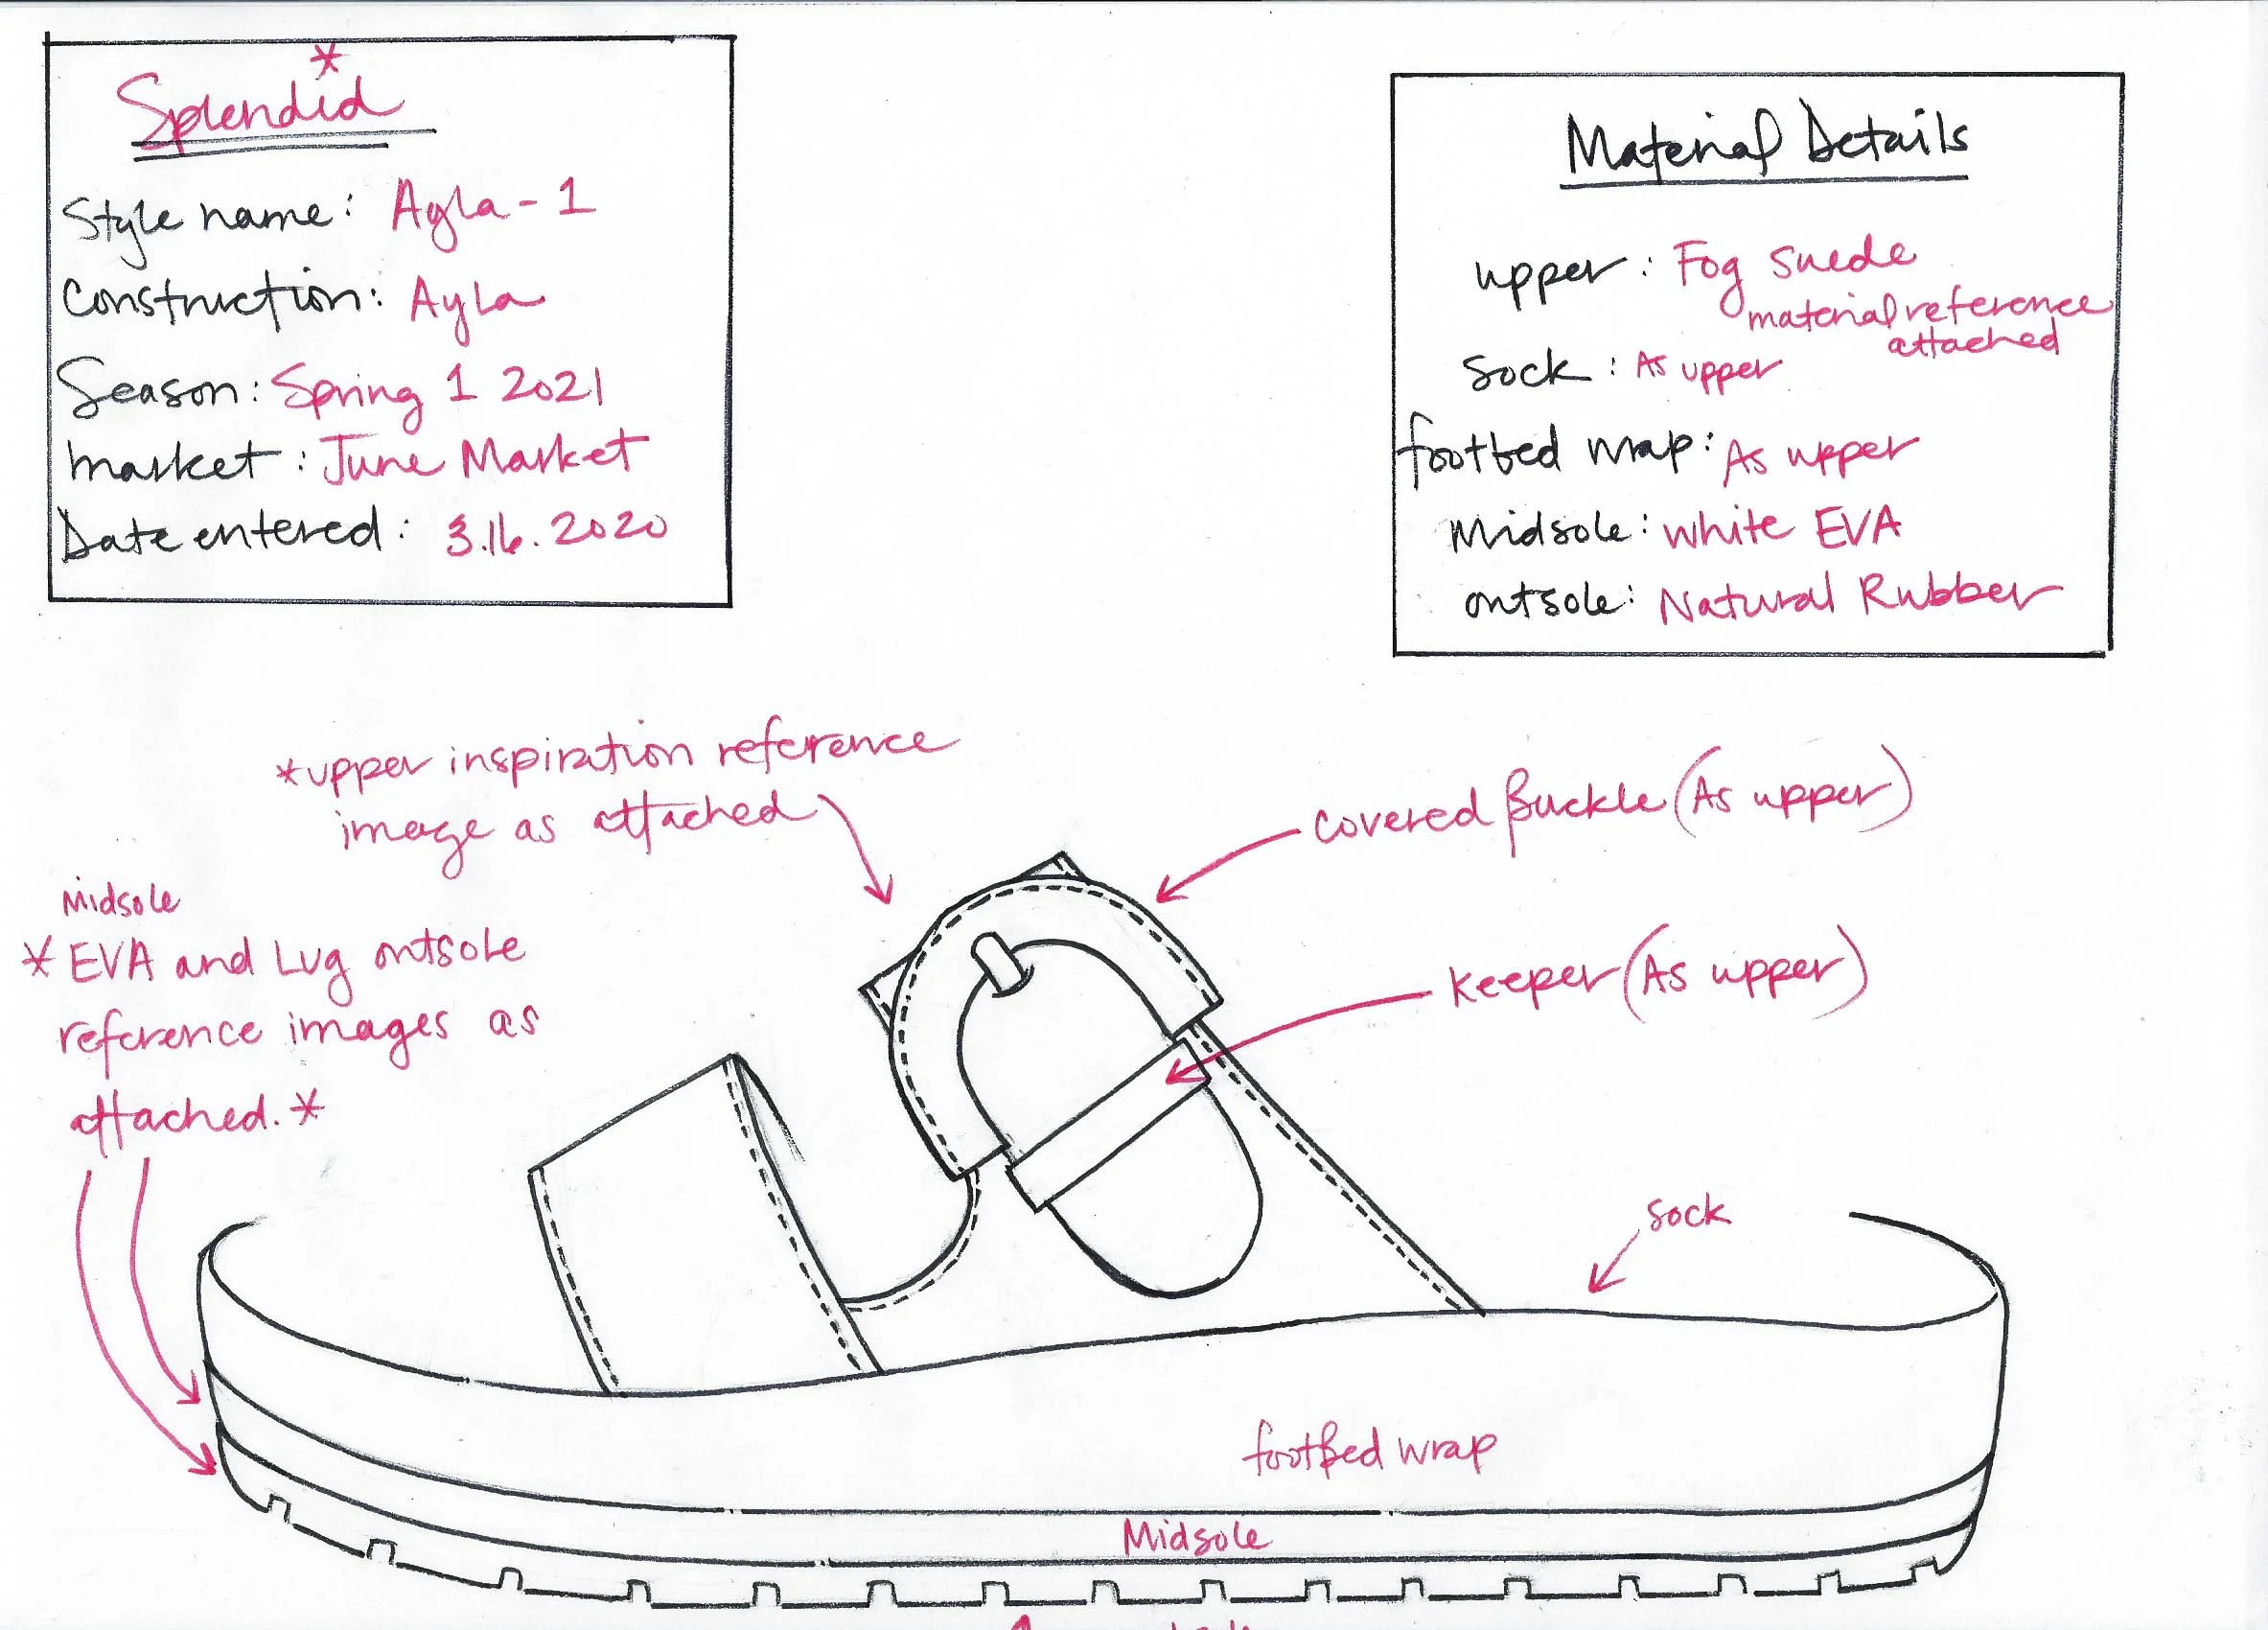 *
Splendid
Style name: Ayla-1
Construction: Ayla
Season: Spring 1 2021
Market: June Market
Date entered: 3.16.2020
Material Details
upper: Fog suede
material reference
attached
Sock: As upper
footbed wrap: As upper
Midsole: white EVA
outsole: Natural Rubber
*upper inspiration reference
image as attached
covered Buckle (As upper)
Keeper (As upper)
Midsole
* EVA and Lug outsole
reference images as
attached.*
Sock
footbed wrap
Midsole